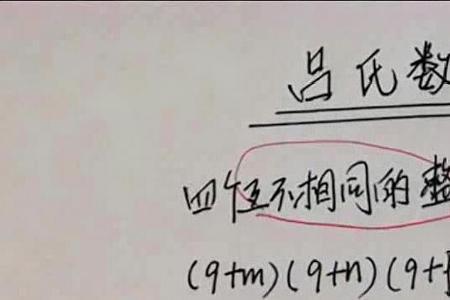 吕氏数
四位不相同的整
(9+m)(9+n)(9+